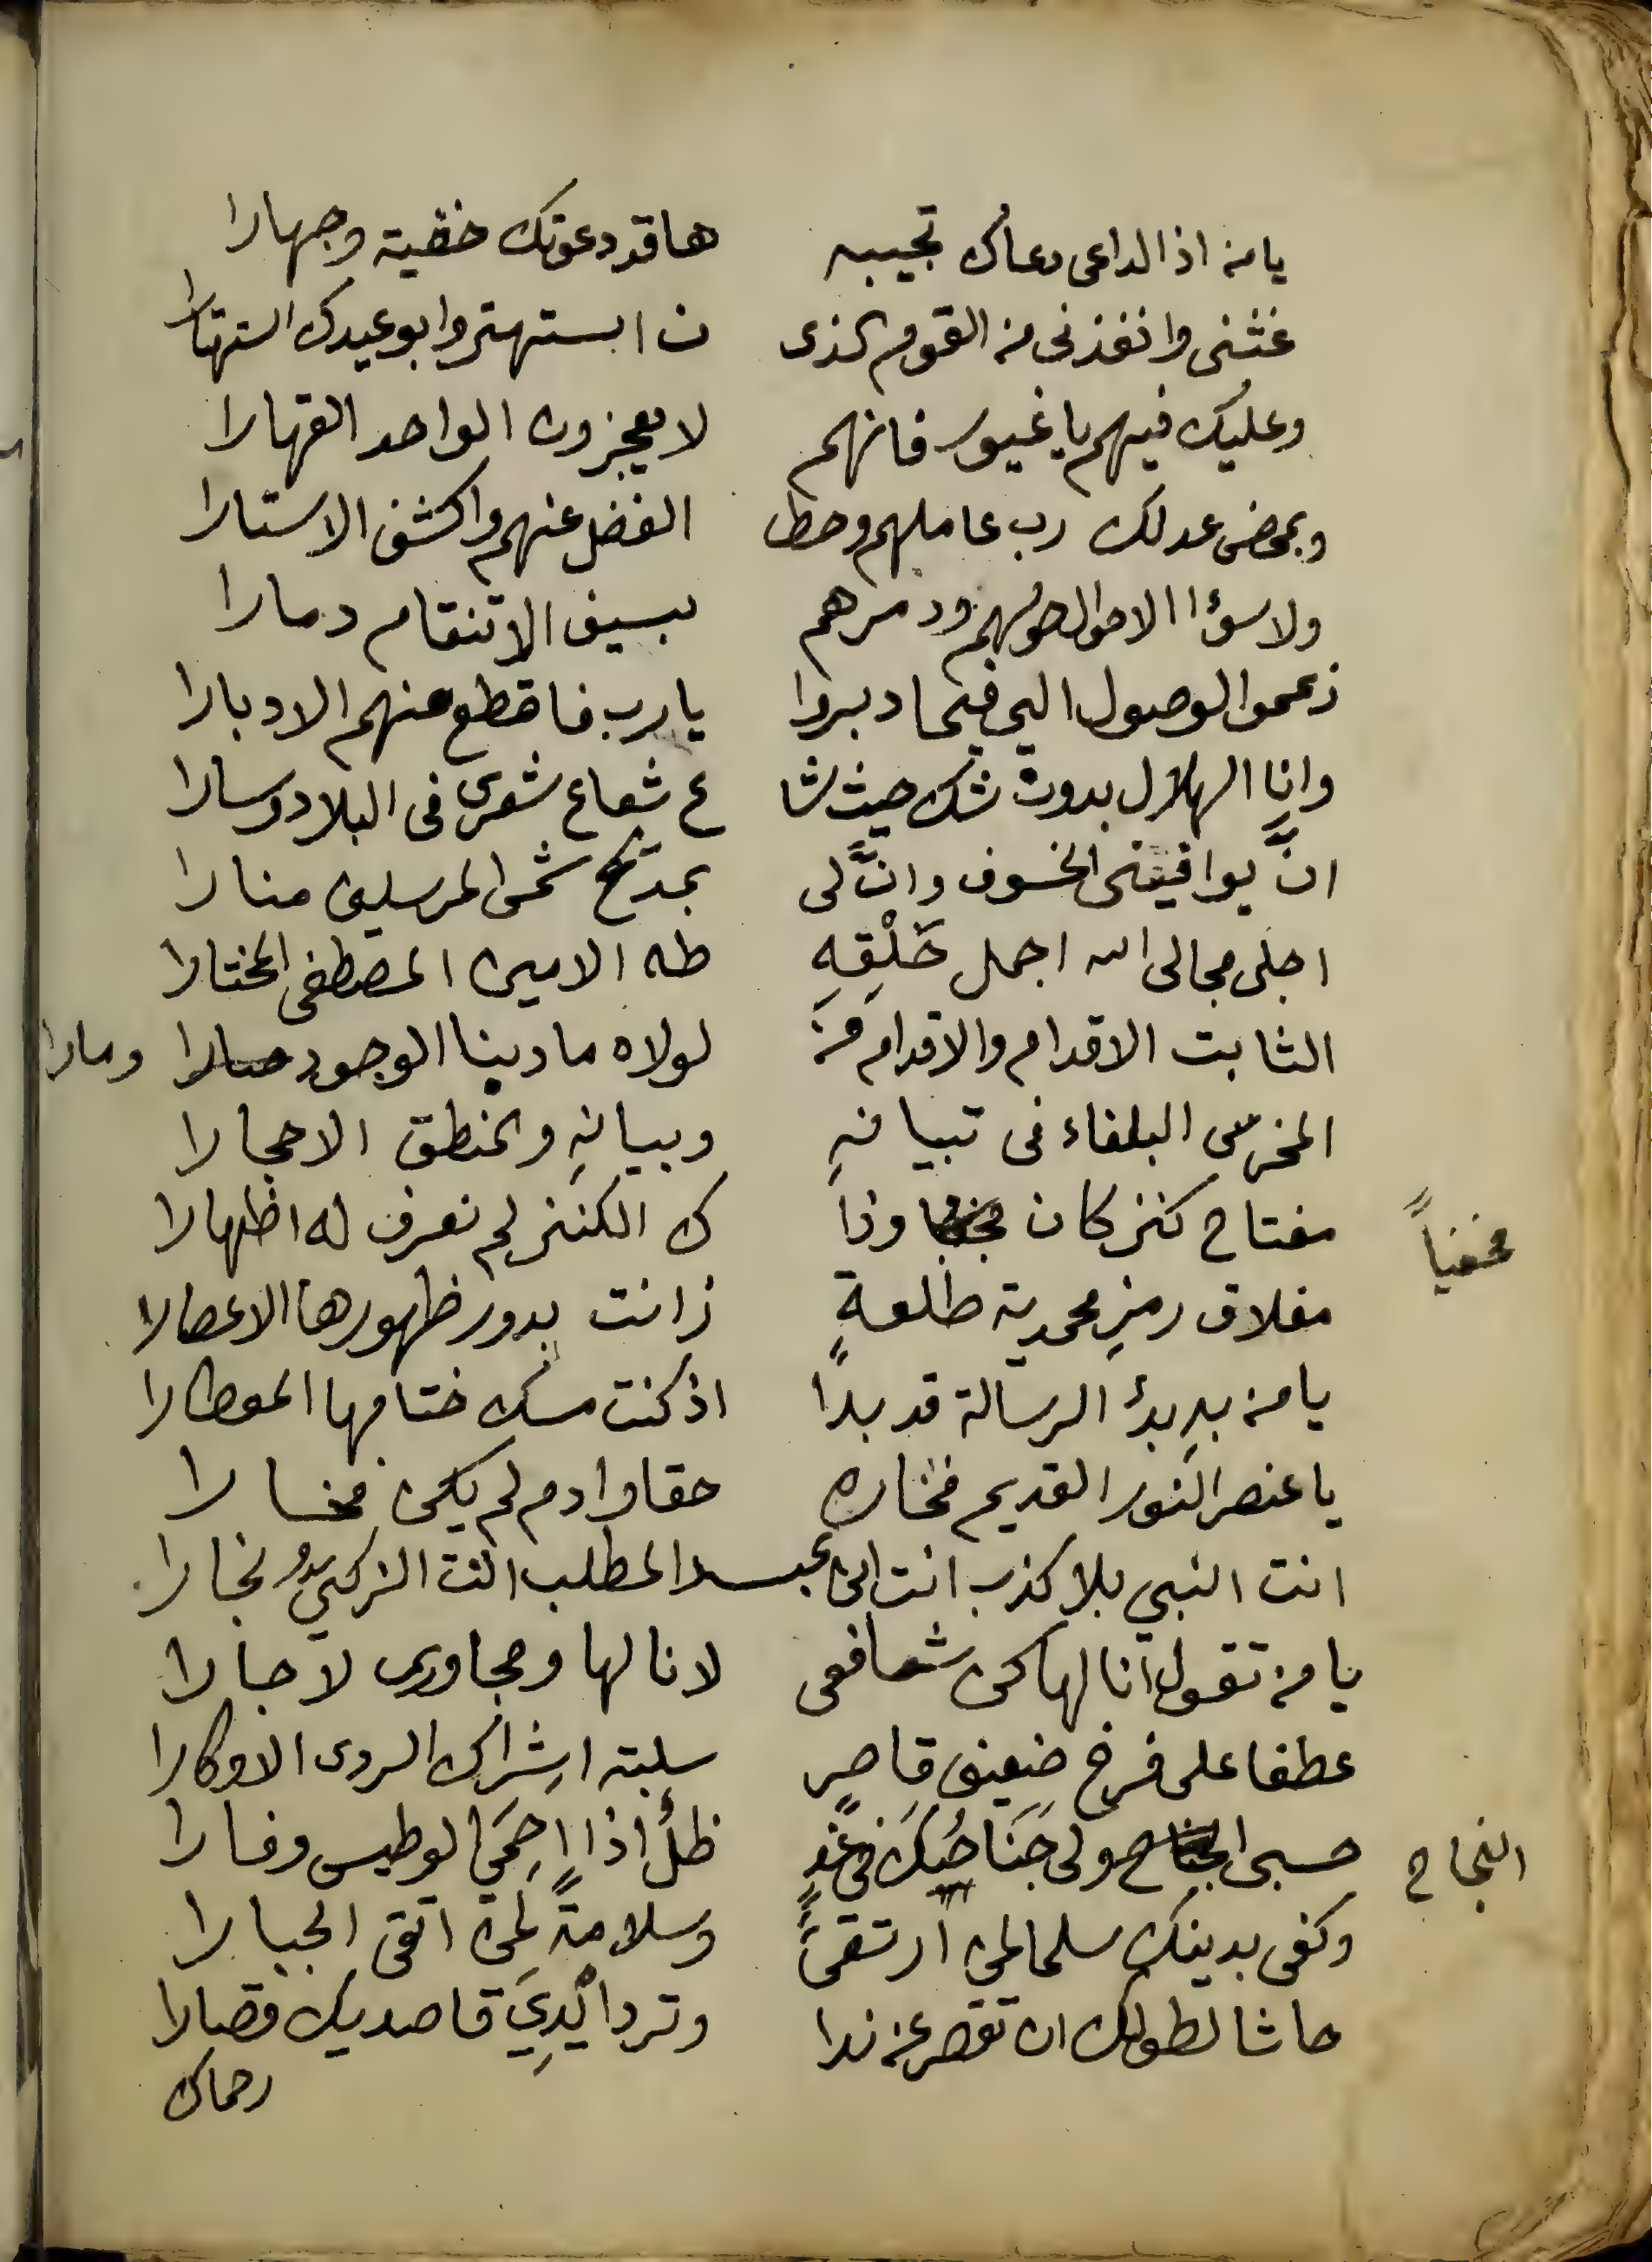 يا من اذا الداعى دعاك تجيبه هاقد دعوتك خفية وجهارا
غثنى وانقذنى من القوم الذى ن ابستهتروا بوعيدك استهتارا
وعليك فيهم يا غيور فانهم لا يعجزون الواحد القهارا
وبمحض عدلك رب عاملهم وحط الفضل عنهم واكشف الاستارا
ولاسوٴا الاحوال حولهم ودمرهم بسيف الانتقام دمارا
زعموا الوصول الي فيما دبروا يارب فاقطع منهم الادبارا
وانا الهلال بدون شك حيث شا ع شعاع شعرى فى البلاد وسارا
انَّ يوافينى الخسوف وانَّ لى بمديح شمس المرسلين منارا
اجلى مجالى الله اجمل خَلْقِهِ طه الامين المصطفى المختارا
الثابت الاقدام والاقدام مَن لولاه مادينا الوجود ومارا
المخرس البلغاء فى تبيانهِ وبيانهِ والمنطق الاحجارا
مفتاح كنز كان مخفياً وذا ك الكنز لم نعرف له اظهارا
مغلاق رمزِ محمدية طلعةٍ زانت بدور ظهورها الاعصارا
يا من بهِ بدٔ الرسالة قد بدا اذ كنت مسك ختامها المعطارا
يا عنصر النور القديم فخاره حقا وادم لم يكن فخارا
انت النبي بلا كذب انت ابن عبد المطلب انت الزكي نجارا
يا من تقول انا لها كن شافعى لانا لها ومجاورى لا جارا
عطفا على فرخ ضعيف قاصرٍ سلبته اشراك الردى الاوكارا
حسبى النجاح ولى جَنَاحُكَ فى غدٍ ظلٌ اذا احمَي الوطيس وفارا
وكفى بدينك سلما لمن ارتقى وسلامةً لمن اتقى الجبارا
حاشا لطولك ان تقصر عن ندا وترد ايْدِيَ قاصديك قصارا
رحماك